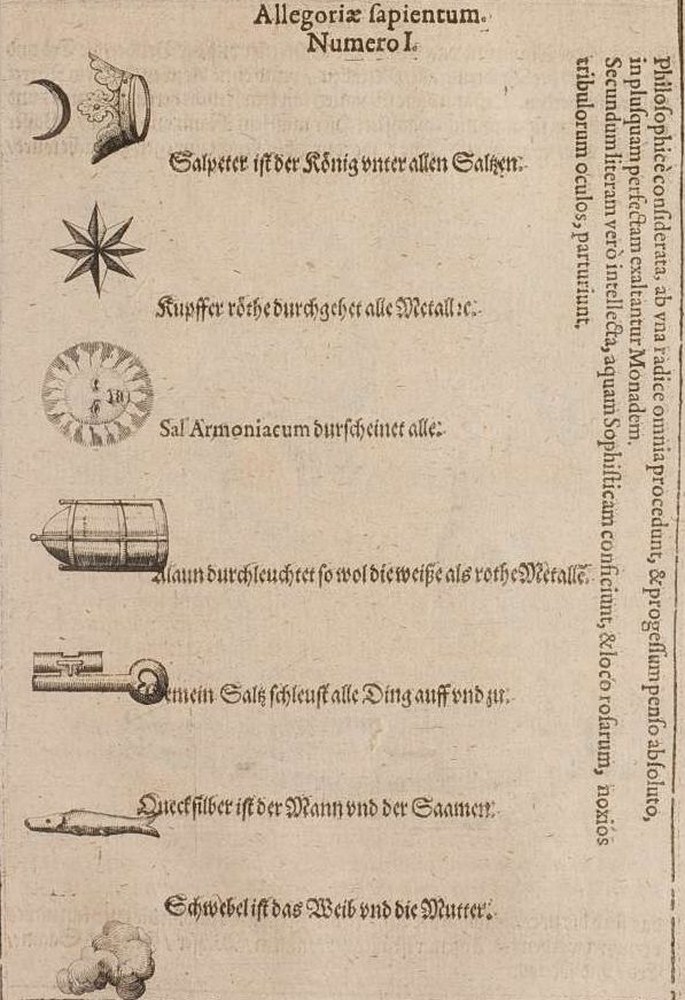 Allegoriæ ſapientum.
Numero I.
Salpeter iſt der König vnter allen Saltzen.
Kupffer röthe durchgehet alle Metall ꝛc.
Sal Armoniacum durſcheinet alle.
Alaun durchleuchtet ſo wol die weiſſe als rothe Metallē.
Gemein Saltz ſchleuſt alle Ding auff vnd zu.
Queckſilber iſt der Mann vnd der Saamen.
Schwebel iſt das Weib vnd die Mutter.
Philoſophicè conſiderata, ab vna radice omnia procedunt, & progeſſum penſo abſoluto,
in pluſquam perfectam exaltantur Monadem.
Secundum literam verò intellecta, aquam Sophiſticam conficiunt, & loco roſarum, noxiós
tribulorum oculos, parturiunt.